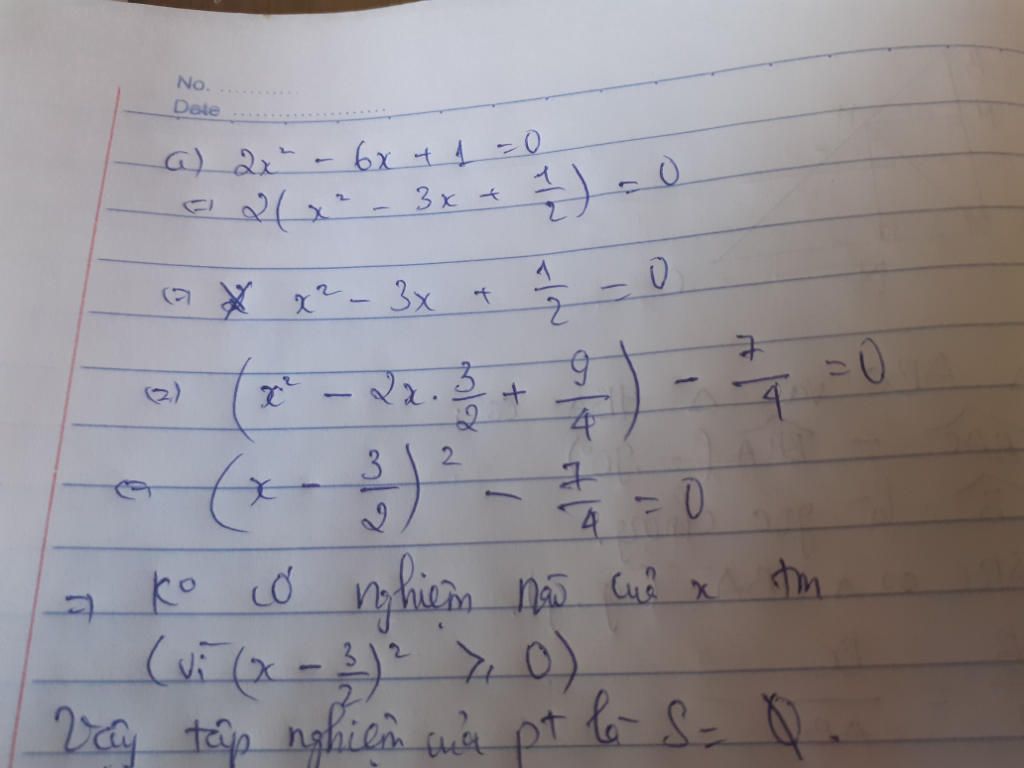 No. ............
Date ........................
a) 2x² - 6x + 1 = 0
⇔ 2(x² - 3x + 1/2) = 0
⇔ x² - 3x + 1/2 = 0
⇔ (x² - 2x . 3/2 + 9/4) - 7/4 = 0
⇔ (x - 3/2)² - 7/4 = 0
⇒ Ko có nghiệm nào của x tm
(vì (x - 3/2)² ≥ 0)
Vậy tập nghiệm của pt là S = ∅.